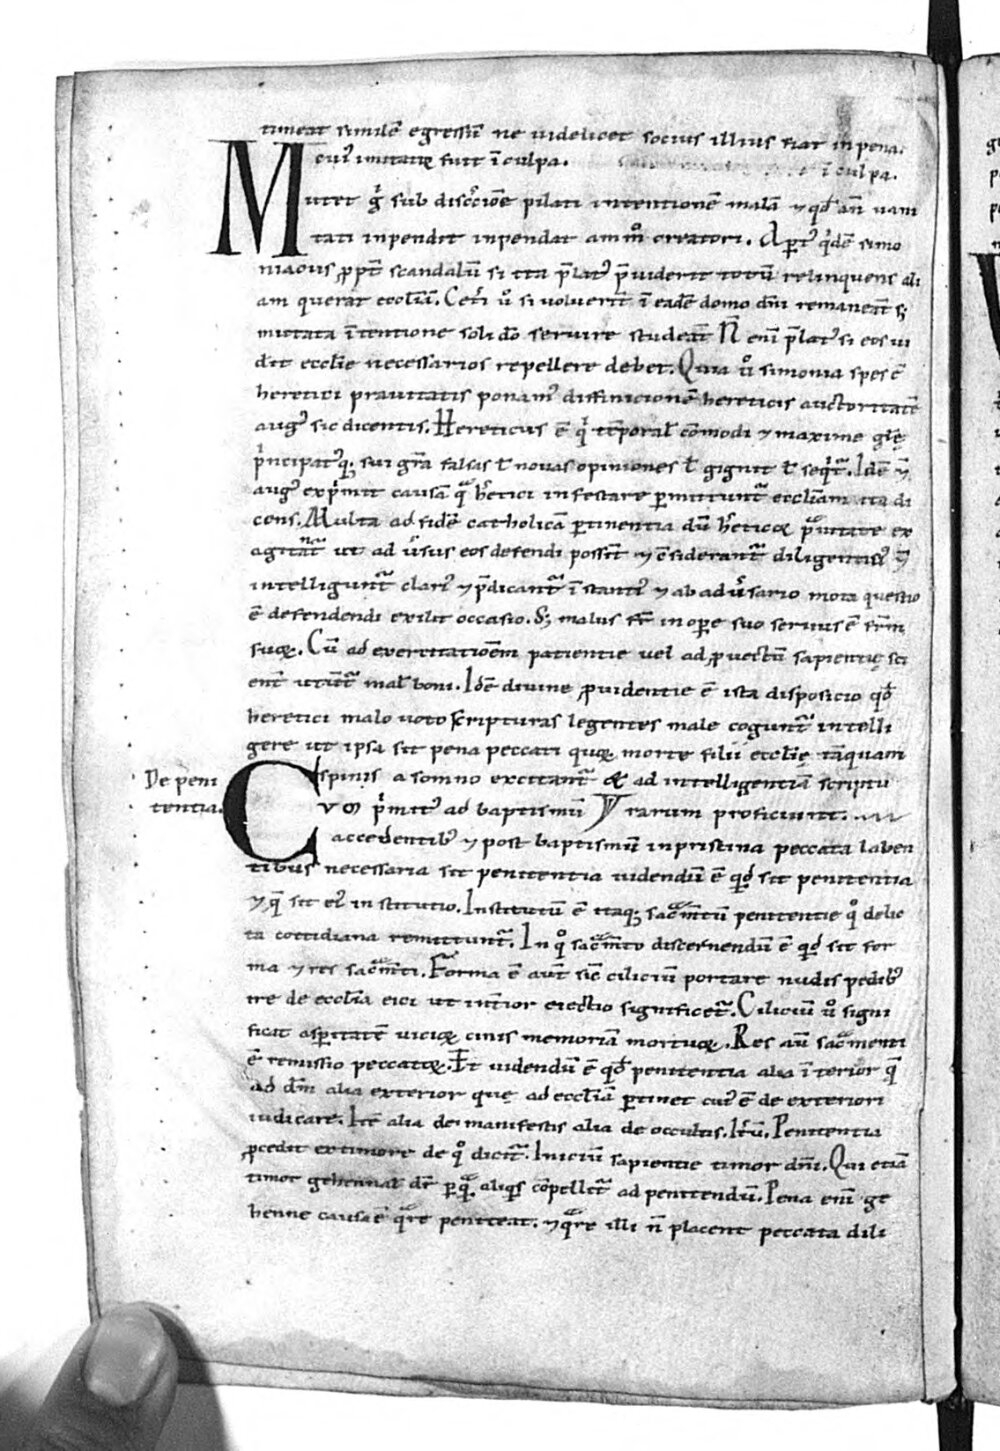 timeat similē egressū ne videlicet socius illius fiat in pena.
cui᷒ imitator fuit ī culpa. ī culpa.
Mutet gͥ sub discr̄cione pilati intentionē malā ⁊ qđ an̄ vani
tati inpendit inpendat am̄ mͦ creatori. Apert᷒ qͥdē simo
niacus ꝓpt̄ scandalū si ita p̄lat᷒ p̄uiderit totū relinquens ali
am querat eccliā. Cet̄i ůo si voluerit̄ ī eadē domo dn̄i remaneāt s;
mutata ītentione soli dō servire studeāt N̄ enī p̄lat᷒ si eos vi
dit ecclie necessarios repellere debet. Quia ůo simonia spes ē
heretici prauitatis ponam᷒ diffinicionē hereticis auctoritatē
aug᷒ sic dicentis. Hereticus ē qͥ tēporal̄ cōmodi ⁊ maxime gl̄ę
pͥncipatꝰq; sui gr̄a falsas ł novas opiniones ł gignit ł seqͥt᷑. Idē ⁊
aug᷒ expͥmit causā qᷓ h̄etici infestare ꝑmittunt᷑ eccliam ita di
cens. Multa ad fidē catholicā ꝑtinentia dū h̄eticoꝝ pᷓuitate ex
agitant᷑ ut ad ůsus eos defendi possit̄ ⁊ cͦsiderant᷑ diligenti᷒ ⁊
intelligunt᷑ clari᷒ ⁊ p̄dicant᷑ īstanti᷒ ⁊ ab adůsario mota questio
ē defendendi exilit occasio. S; malus fr̄ in oꝑe suo servus ē frm̄
suoꝝ. Cū ad exercitationēm patientie vel ad ꝓuectū sapientię sci
ent̄ utunt᷑ mal᷒ boni. Idē divine ꝓuidentie ē ista disposicio qđ
heretici malo voto scripturas legentes male cogunt᷑ intelli
gere ut ipsa sit pena peccati quoꝝ morte filii ecclię tāquam
spinis a somno excitant᷑ & ad intelligentiā scriptu
rarum proficiunt.
De peni
tentia.
CVM pͥmit᷒ ad baptismū
accedentib᷒ ⁊ post baptismū in pristina peccata laben
tibus necessaria sit penitentia videndū ē qđ sit penitentia
⁊ q̄ sit ei᷒ institutio. Institutū ē itaq; sacͣm̄tū penitentie qͦ delic
ta cottidiana remittunt᷑. In qͦ sacͣm̄to discernendū ē qđ sit for
ma ⁊ res sacͣm̄ti. Forma ē aut̄ sic̄ ciliciū portare nudis pedib᷒
ire de ecclīa eici ut int̄ior eiectio significet᷑. Ciliciū ůo signi
ficat asꝑitatē vicioꝝ cinis memoriā mortuoꝝ. Res aū sacͣmenti
ē remissio peccatoꝝ. Et videndū ē qđ penitentia alia īterior q̄
ad dn̄m alia exterior que ad eccliā ꝑtinet cui᷒ ē de exteriori
iudicare. Itē alia de manifestis alia de occultis. Itr̄ū. Penitentia
ꝓcedit ex timore de qͦ dicit᷑. Iniciū sapientie timor dn̄i. Qui etiā
timor gehennal̄ dr̄ ꝑ qᷓ aliqͥs cōpellit᷑ ad penitendū. Pena enī ge
henne causa ē qᷓre peniteat. ⁊ qᷓre illi n̄ placent peccata dili